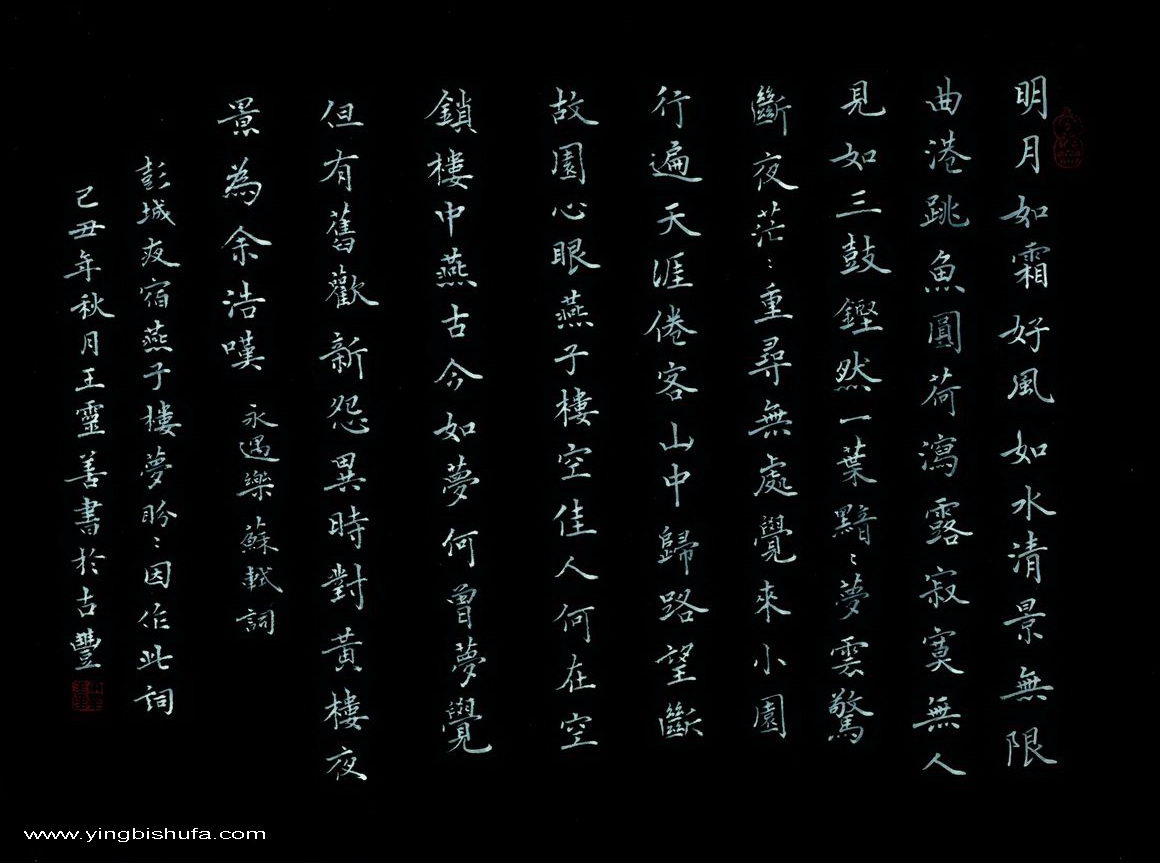 明月如霜好風如水清景無限
曲港跳魚圓荷瀉露寂寞無人
見如三鼓鏗然一葉黯〻夢雲驚
斷夜茫〻重尋無處覺來小園
行遍天涯倦客山中歸路望斷
故園心眼燕子樓空佳人何在空
鎖樓中燕古今如夢何曾夢覺
但有舊歡新怨異時對黃樓夜
景為余浩嘆 永遇樂 蘇軾詞
彭城夜宿燕子樓夢盼〻因作此詞
己丑年秋月王靈善書於古豐
www.yingbishufa.com